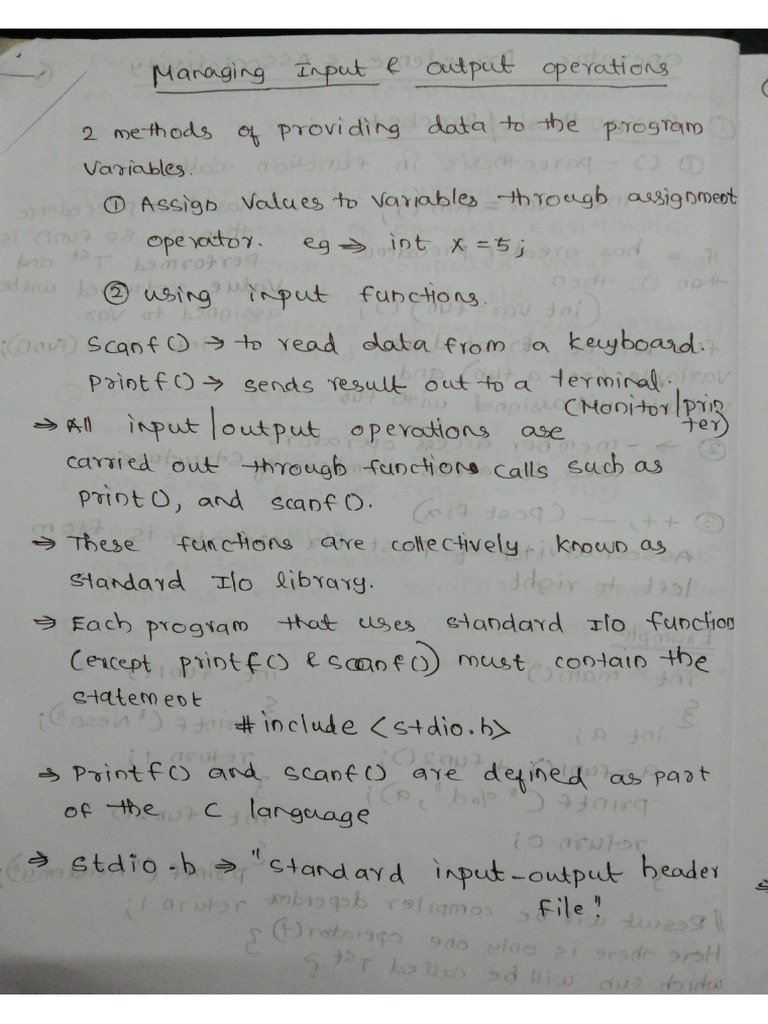 Managing Input & output operations
2 methods of providing data to the program
variables.
① Assign values to variables through assignment
operator. eg ⇒ int x = 5;
② using input functions.
scanf() → to read data from a keyboard.
printf() → sends result out to a terminal.
(Monitor/prin
ter)
⇒ All input/output operations are
carried out through functions calls such as
print(), and scanf().
⇒ These functions are collectively known as
standard I/o library.
⇒ Each program that uses standard I/o function
(except printf() & scanf()) must contain the
statement
#include <stdio.h>
⇒ printf() and scanf() are defined as part
of the C language
⇒ stdio.h ⇒ "standard input-output header
file".